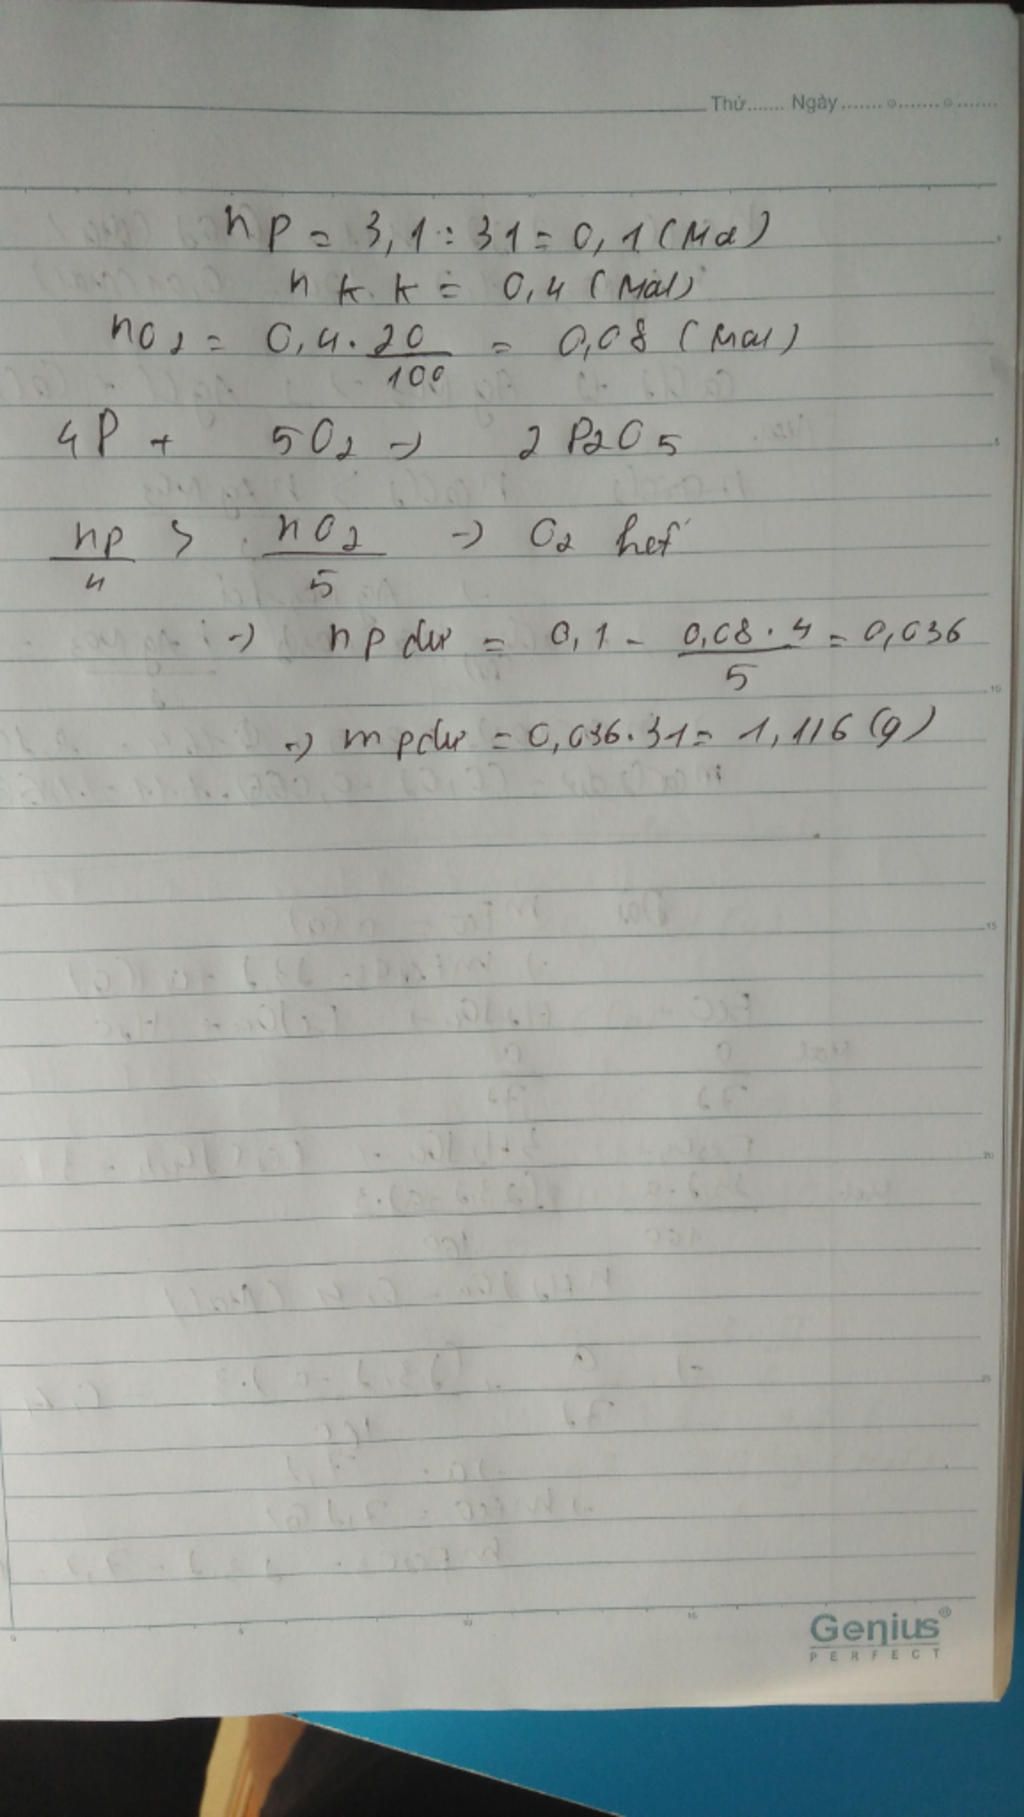 Thứ....... Ngày.......o.......o.......
nP = 3,1 : 31 = 0,1 (Mol)
n k.k = 0,4 (Mol)
nO2 = 0,4.20/100 = 0,08 (Mol)
4P + 5O2 -> 2 P2O5
nP/4 > nO2/5 -> O2 hết
-> nP dư = 0,1 - 0,08.4/5 = 0,036
-> mP dư = 0,036.31 = 1,116 (g)
Genius®
PERFECT